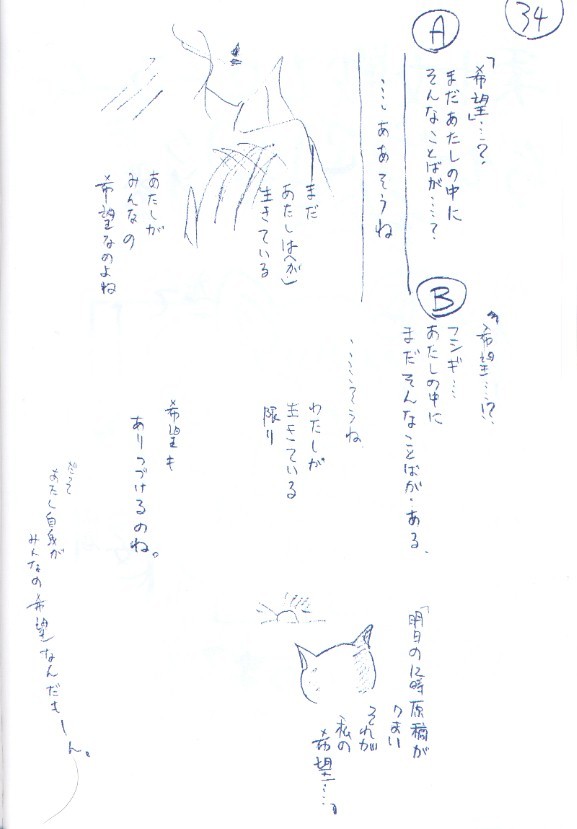 34
A
「希望」…?
まだあたしの中に
そんなことばが……?
……ああそうね
まだ
あたしは(が)
生きている
あたしが
みんなの
希望なのよね
B
"希望…!?
フシギ…
あたしの中に
まだそんなことばが・ある、
……そうね
わたしが
生きている
限り
希望も
ありつづけるのね。
だって
あたし自身が
みんなの「希望」なんだもーん。
「明日の12時原稿が
それが
私の
希望…」